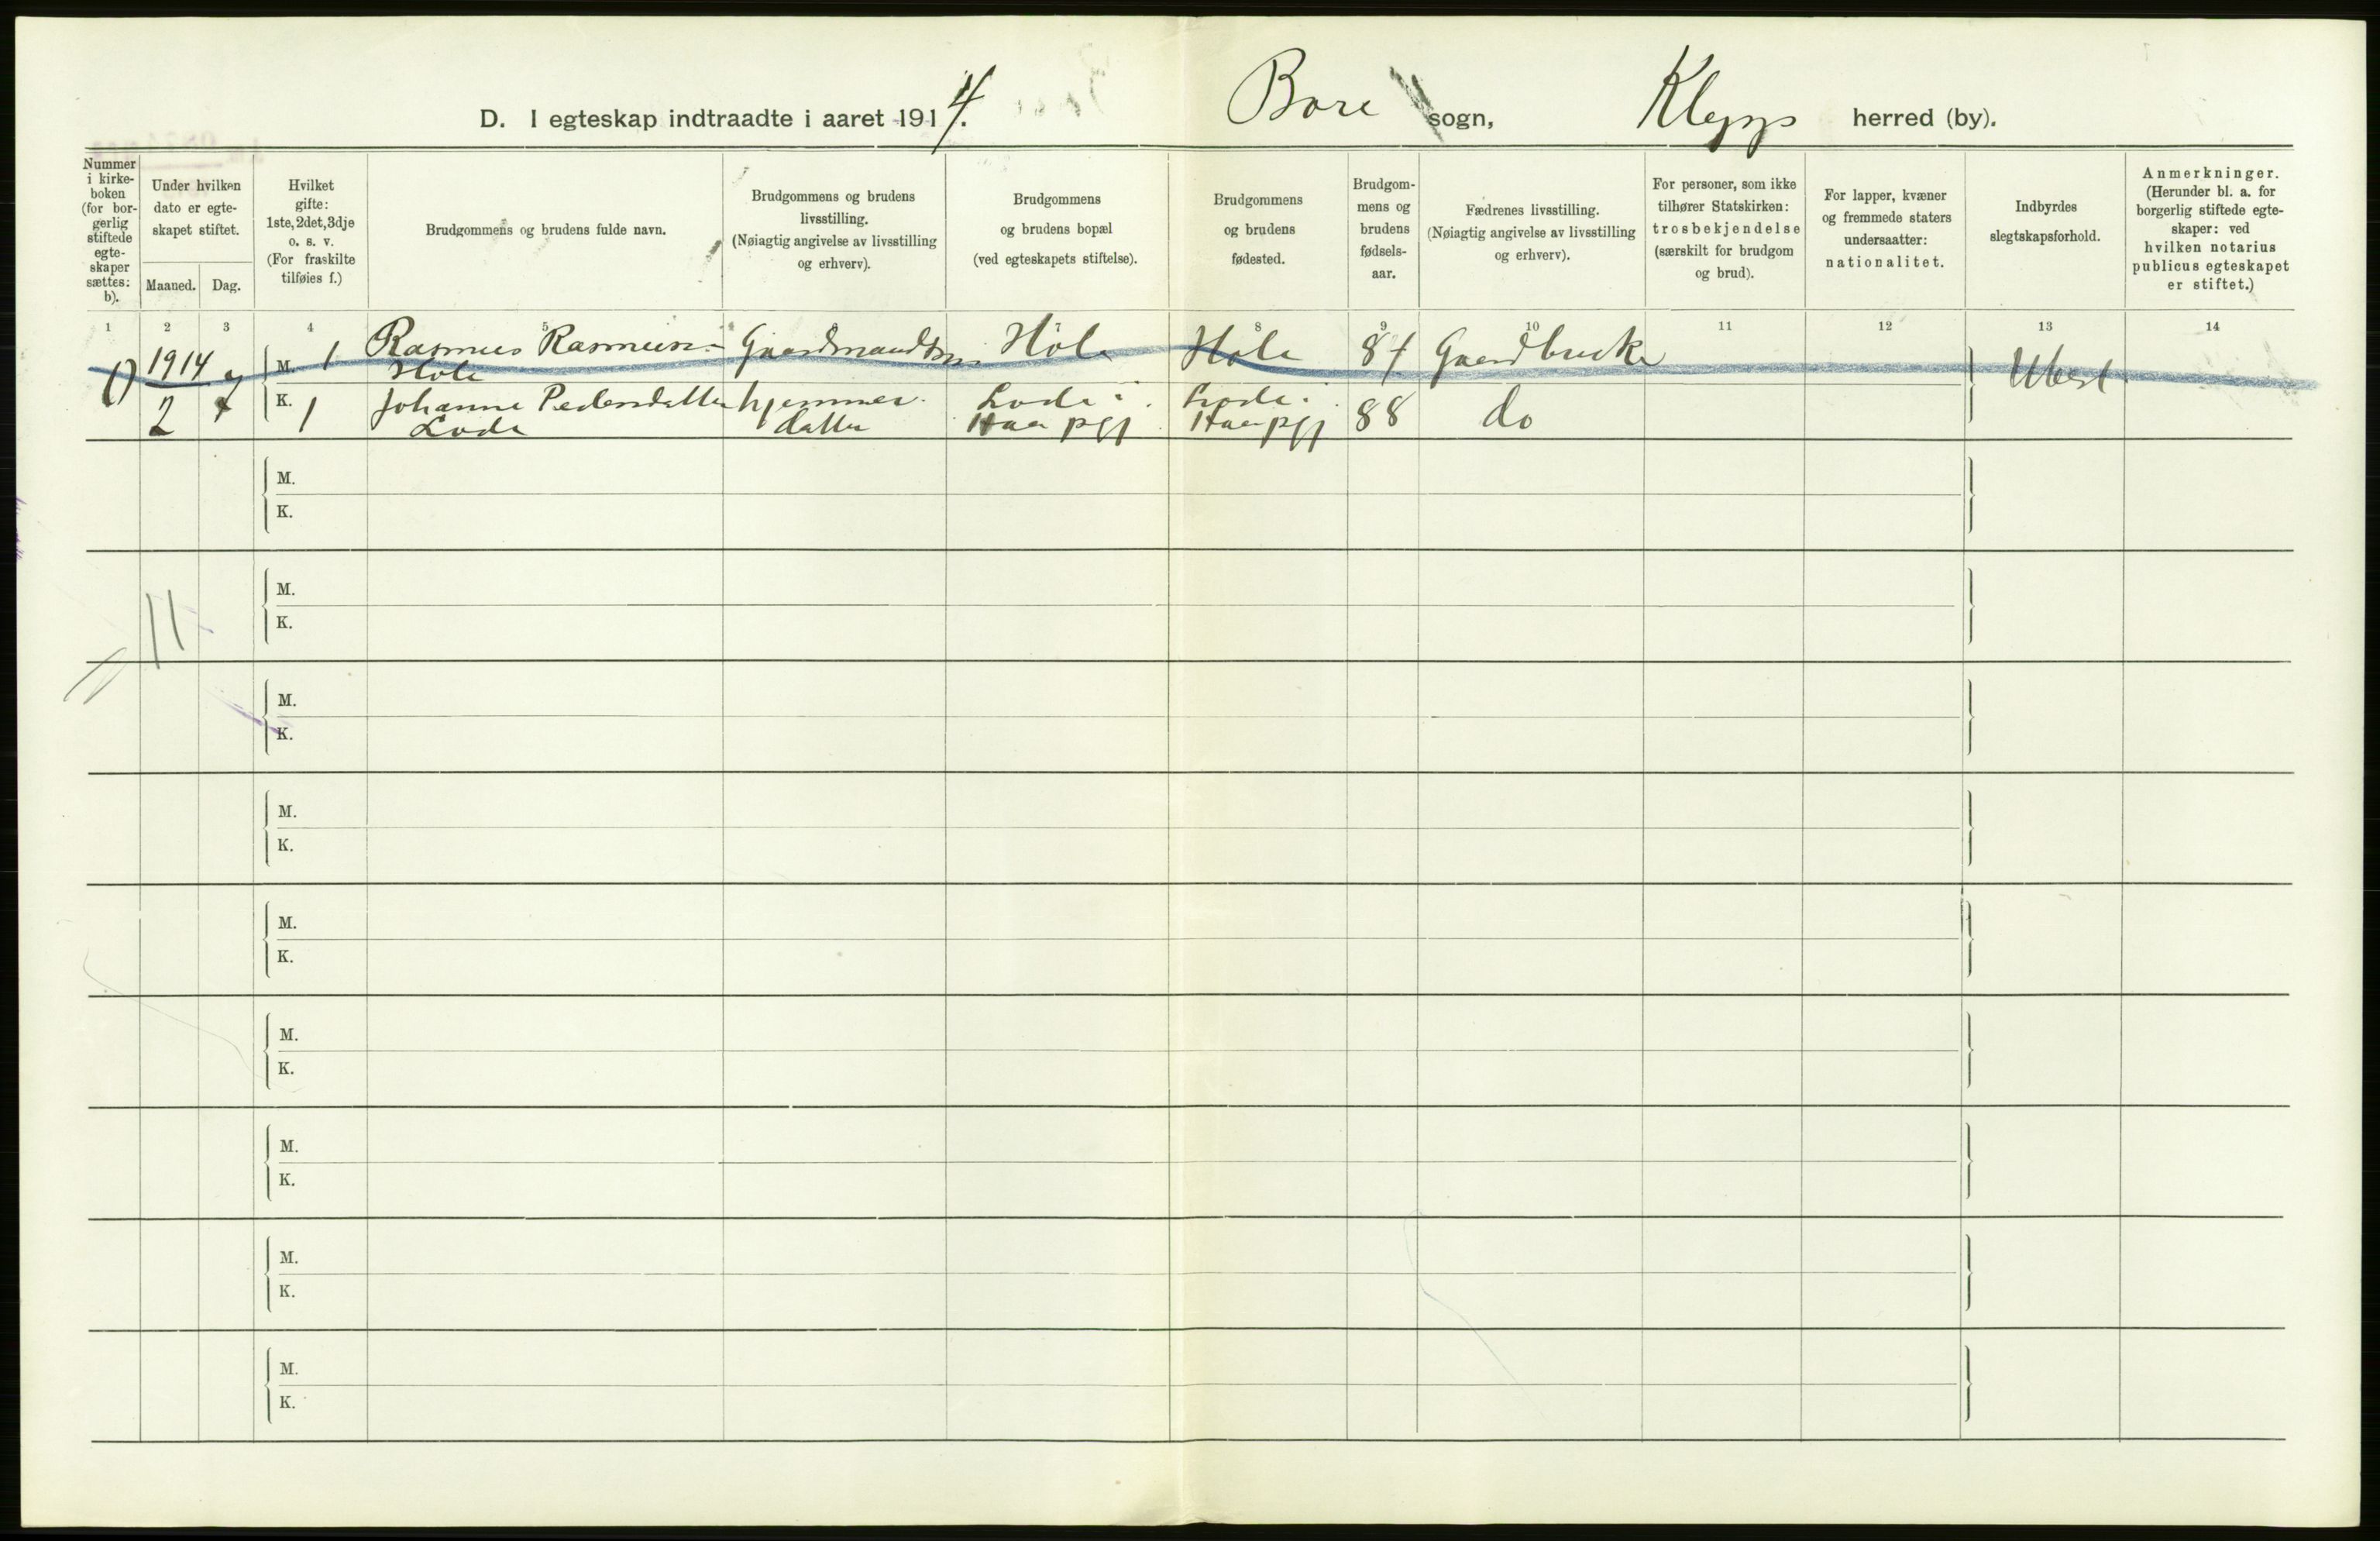 D. I egteskap indtraadte i aaret 1914. Bore sogn, Klepp herred (by).
Nummer i kirke- boken (for bor- gerlig stiftede egte- skaper sættes: b).
Under hvilken dato er egte- skapet stiftet.
Maaned. Dag.
Hvilket gifte: 1ste, 2det, 3dje o. s. v. (For fraskilte tilføies f.)
Brudgommens og brudens fulde navn.
Brudgommens og brudens livsstilling. (Nøiagtig angivelse av livsstilling og erhverv).
Brudgommens og brudens bopæl (ved egteskapets stiftelse).
Brudgommens og brudens fødested.
Brudgom- mens og brudens fødsels- aar.
Fædrenes livsstilling. (Nøiagtig angivelse av livsstilling og erhverv).
For personer, som ikke tilhører Statskirken: trosbekjendelse (særskilt for brudgom og brud).
For lapper, kvæner og fremmede staters undersaatter: nationalitet.
Indbyrdes slegtskapsforhold.
Anmerkninger. (Herunder bl. a. for borgerlig stiftede egte- skaper: ved hvilken notarius publicus egteskapet er stiftet.)
1 2 3 4 5 6 7 8 9 10 11 12 13 14
1) 1914 M. 1 Rasmus Rasmussen Gaardmandssøn Hole Hole 87 Gaardbruker Ubesl.
Hole
2 7 K. 1 Johanne Pedersdatter hjemmev. Lode i Lode i 88 do
Lode datter Haa pgj Haa pgj
M.
K.
M.
11
K.
M.
K.
M.
K.
M.
K.
M.
K.
M.
K.
M.
K.
M.
K.